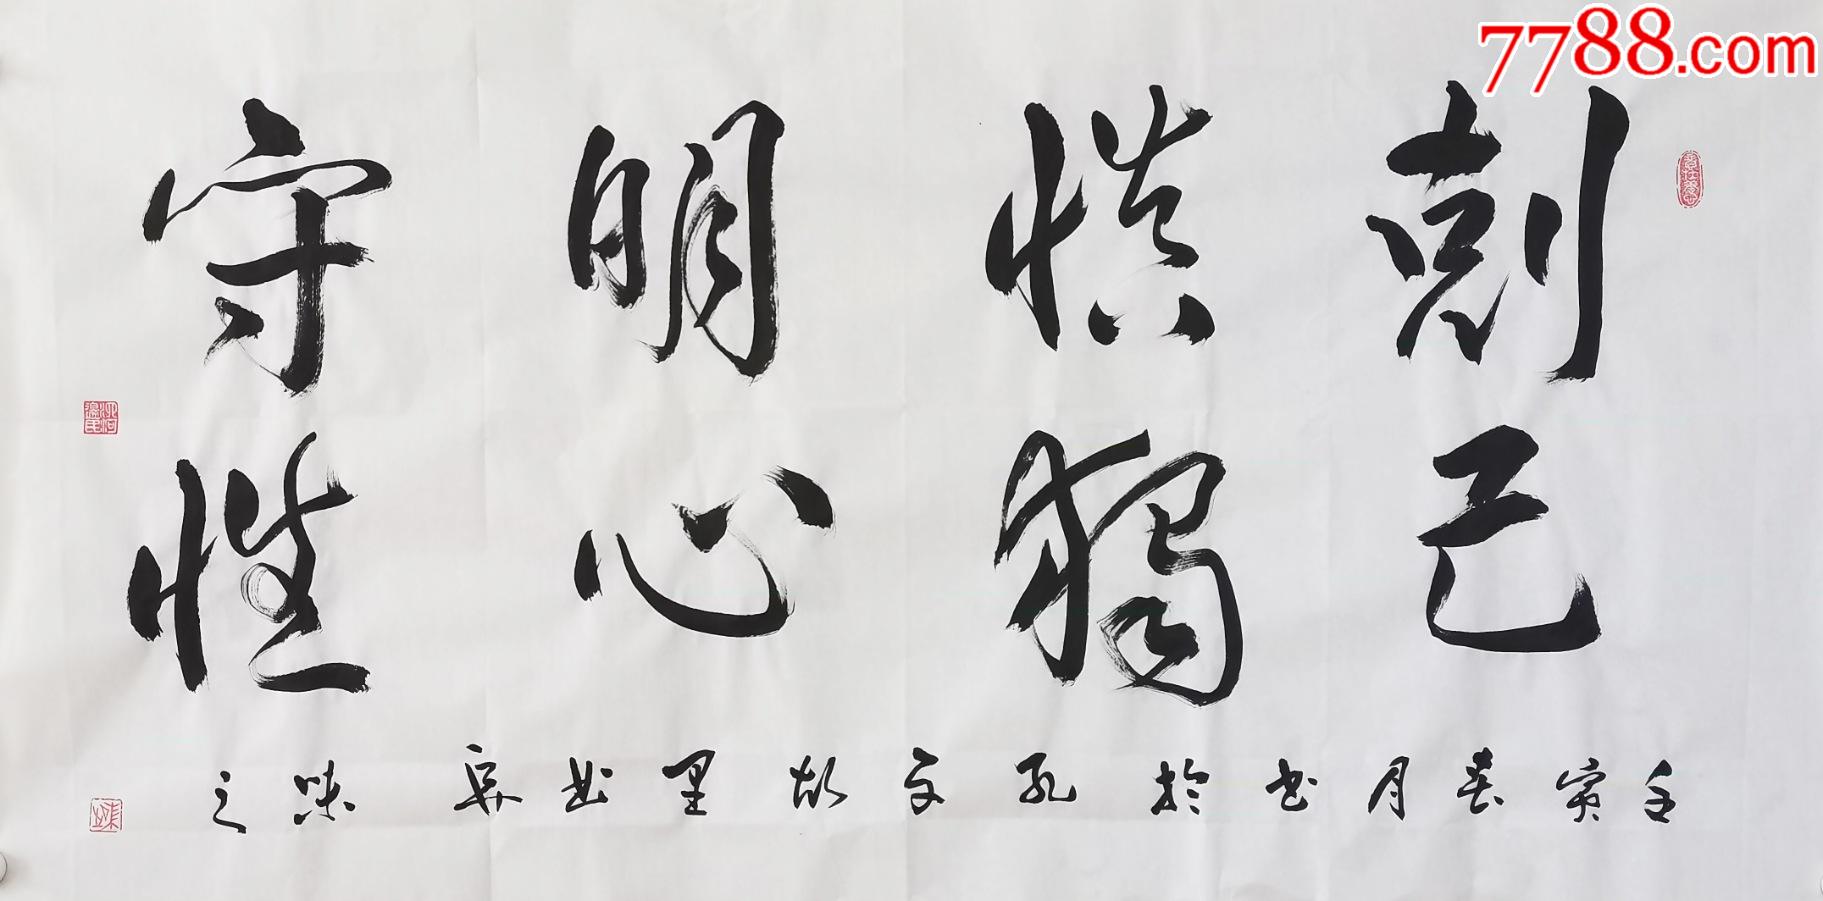 7788.com
剋己
慎獨
明心
守性
壬寅春月书於孔子故里曲阜味之